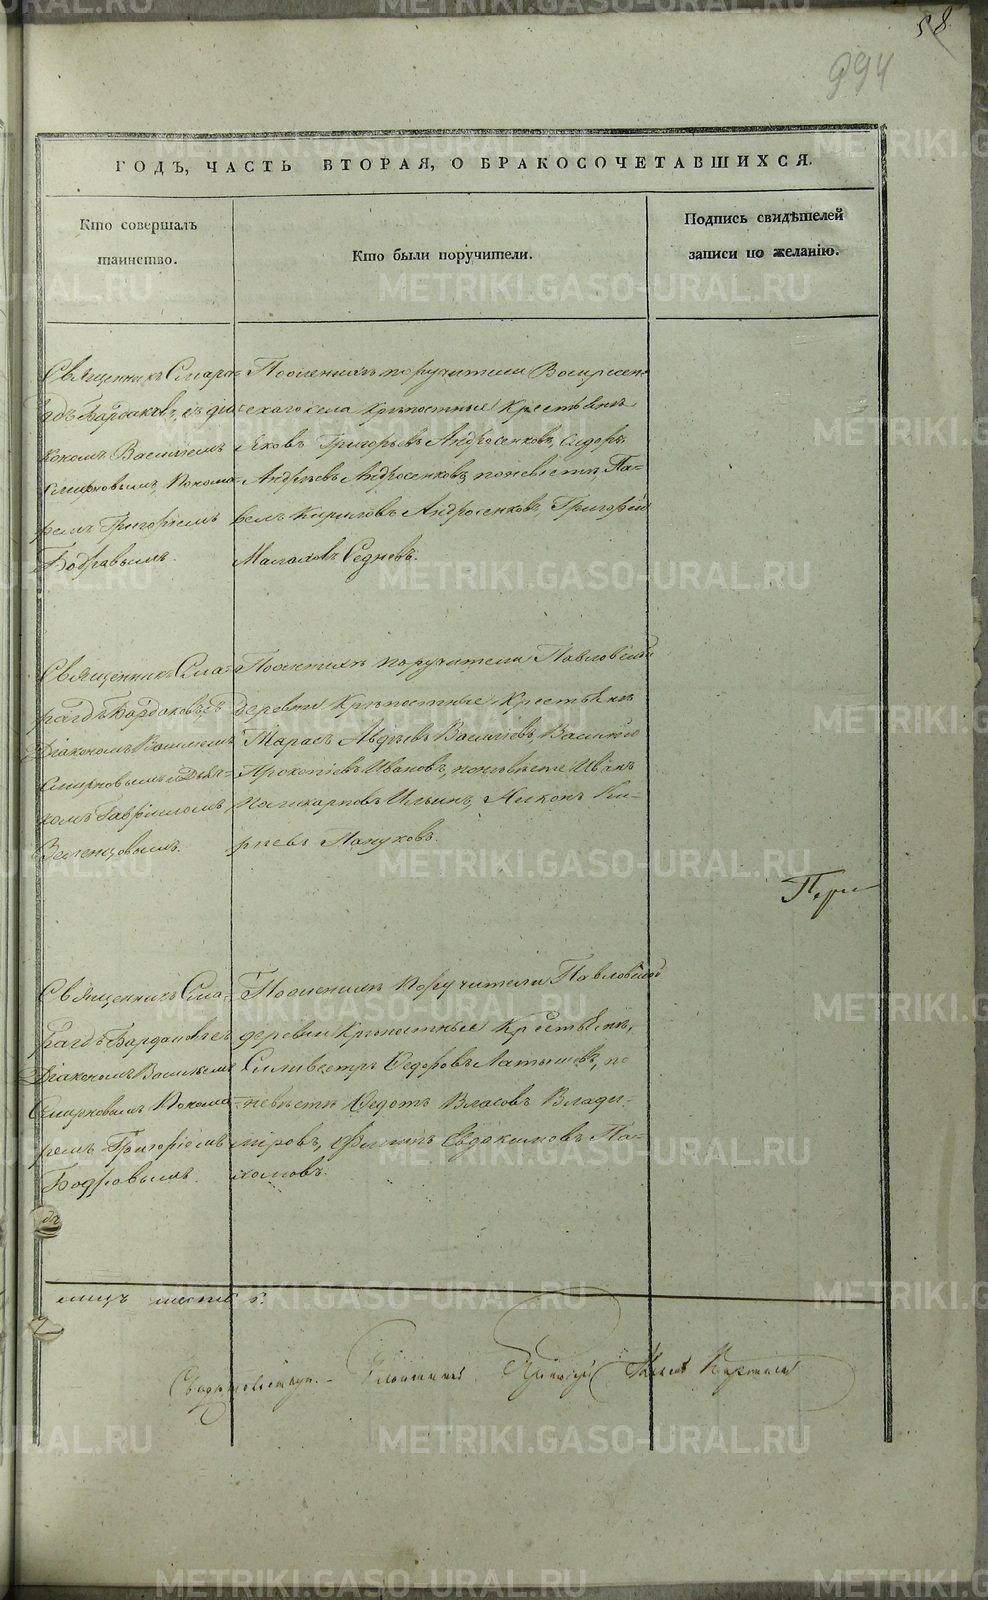 58
994
ГОДЪ, ЧАСТЬ ВТОРАЯ, О БРАКОСОЧЕТАВШИХСЯ.
Кто совершалъ
таинство.
Кто были поручители.
Подпись свидѣтелей
записи по желанію.
Священникъ Смара-
гдъ Бардаковъ, съ діа-
кономъ Василіемъ
Смирновымъ, Понома-
ремъ Григоріемъ
Бодровымъ.
По женихѣ поручители Воскресен-
скаго села крѣпостные Крестьяне
Яковъ Григорьевъ Андросенковъ, Сидоръ
Андреевъ Андросенковъ, по невѣстѣ, Па-
велъ Кириловъ Андросенковъ, Григорій
Седневъ.
Священникъ Сма-
рагдъ Бардаковъ съ
Діакономъ Василіемъ
Смирновымъ и Дьяч-
комъ Гавріиломъ
Зеленцовымъ.
По женихѣ поручители Павловской
деревни Крѣпостные Крестьяне
Тарасъ Авдѣевъ Василіевъ, Василій
Прокопіевъ Ивановъ, по невѣсте Иванъ
Поликарповъ Ильинъ, Никонъ
Пануковъ.
Священникъ Сма-
рагдъ Бардаковъ съ
Діакономъ Василіемъ
Смирновымъ Понома-
ремъ Григоріемъ
Бодровымъ.
По женихѣ поручители Павловской
деревни Крѣпостные Крестьяне,
Силивестръ Ѳедоровъ Латышевъ, по
невѣсти Ѳедотъ Власовъ Влади-
міровъ, Филипъ Евдокимовъ Па-
хомовъ.
лицъ шесть 6.
METRIKI.GASO-URAL.RU